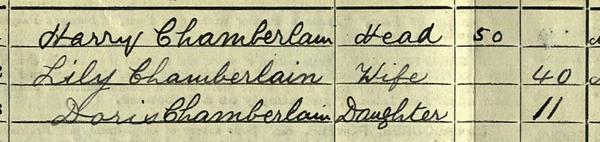 Harry Chamberlain Head 50
Lily Chamberlain Wife 40
Doris Chamberlain Daughter 11